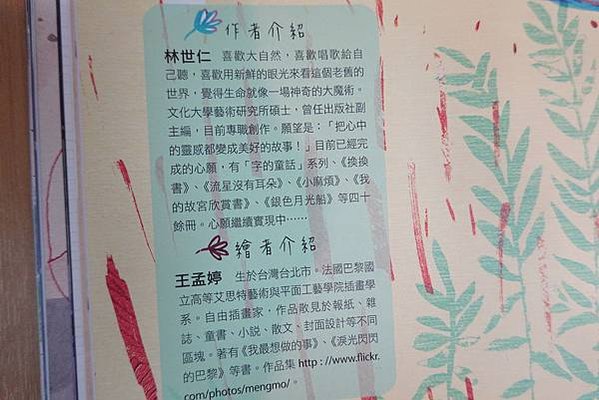 作者介紹
林世仁 喜歡大自然，喜歡唱歌給自
己聽，喜歡用新鮮的眼光來看這個老舊的
世界，覺得生命就像一場神奇的大魔術。
文化大學藝術研究所碩士，曾任出版社副
主編，目前專職創作。願望是：「把心中
的靈感都變成美好的故事！」目前已經完
成的心願，有「字的童話」系列、《換換
書》、《流星沒有耳朵》、《小麻煩》、《我
的故宮欣賞書》、《銀色月光船》等四十
餘冊。心願繼續實現中……
繪者介紹
王孟婷 生於台灣台北市。法國巴黎國
立高等艾思特藝術與平面工藝學院插畫學
系。自由插畫家，作品散見於報紙、雜
誌、童書、小說、散文、封面設計等不同
區塊。若有《我最想做的事》、《淚光閃閃
的巴黎》等書。作品集 http://www.flickr.
com/photos/mengmo/。